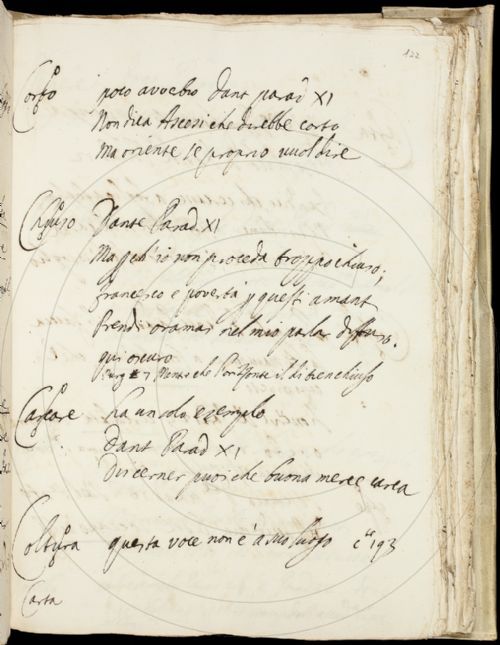 122
Corto poco avverbio Dant parad XI
Non dica Ascesi che direbbe corto
Ma oriente se proprio vuol dire
Chiuso Dante Parad XI
Ma perch'io non proceda troppo chiuso;
Francesco e povertà p questi amant
Prendi oramai nel mio parlar diffuso.
qui oscuro
Purg 7
Caricare ha un solo esempio
Dant Parad XI
Discerner puoi che buona merce carca
Coltura questa voce non è a suo luogo c 193
Carta